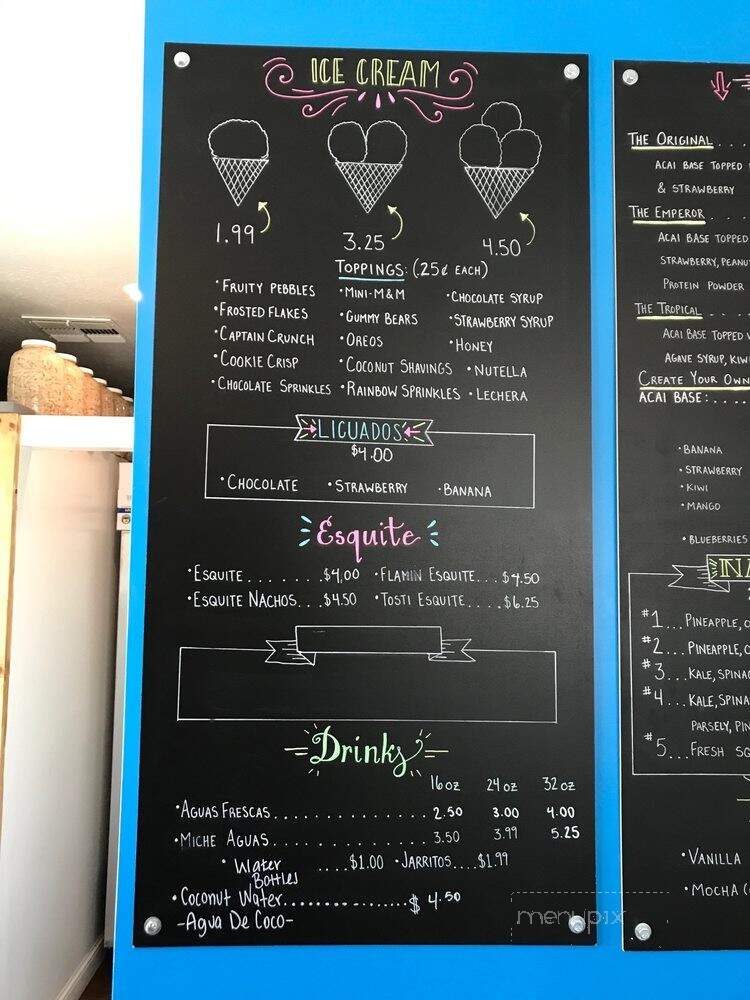 ICE CREAM
1.99 3.25 4.50
TOPPINGS: (.25¢ EACH)
• FRUITY PEBBLES • MINI-M&M • CHOCOLATE SYRUP
• FROSTED FLAKES • GUMMY BEARS • STRAWBERRY SYRUP
• CAPTAIN CRUNCH • OREOS • HONEY
• COOKIE CRISP • COCONUT SHAVINGS • NUTELLA
• CHOCOLATE SPRINKLES • RAINBOW SPRINKLES • LECHERA
LICUADOS
$4.00
• CHOCOLATE • STRAWBERRY • BANANA
Esquite
• ESQUITE . . . . . . . $4.00 • FLAMIN ESQUITE . . . $4.50
• ESQUITE NACHOS . . . $4.50 • TOSTI ESQUITE . . . . . $6.25
Drinks
16oz 24oz 32oz
• AGUAS FRESCAS . . . . . . . . . . . . . . 2.50 3.00 4.00
• MICHE AGUAS . . . . . . . . . . . . . . 3.50 3.99 5.25
• Water Bottles . . . . $1.00 • JARRITOS . . . . $1.99
• Coconut Water . . . . . . . . . . . . . . $ 4.50
-Agua De Coco-
THE ORIGINAL . . . .
ACAI BASE TOPPED
& STRAWBERRY
THE EMPEROR . . .
ACAI BASE TOPPED
STRAWBERRY, PEANU
PROTEIN POWDER
THE TROPICAL . . . .
ACAI BASE TOPPED
AGAVE SYRUP, KIW
CREATE YOUR OWN
ACAI BASE: . . . .
• BANANA
• STRAWBERRY
• KIWI
• MANGO
• BLUEBERRIES
#1 . . . PINEAPPLE,
#2 . . . PINEAPPLE,
#3 . . . KALE, SPINAC
#4 . . . KALE, SPINA
PARSELY, PIN
#5 . . . FRESH SQ
• VANILLA
• MOCHA
menupix